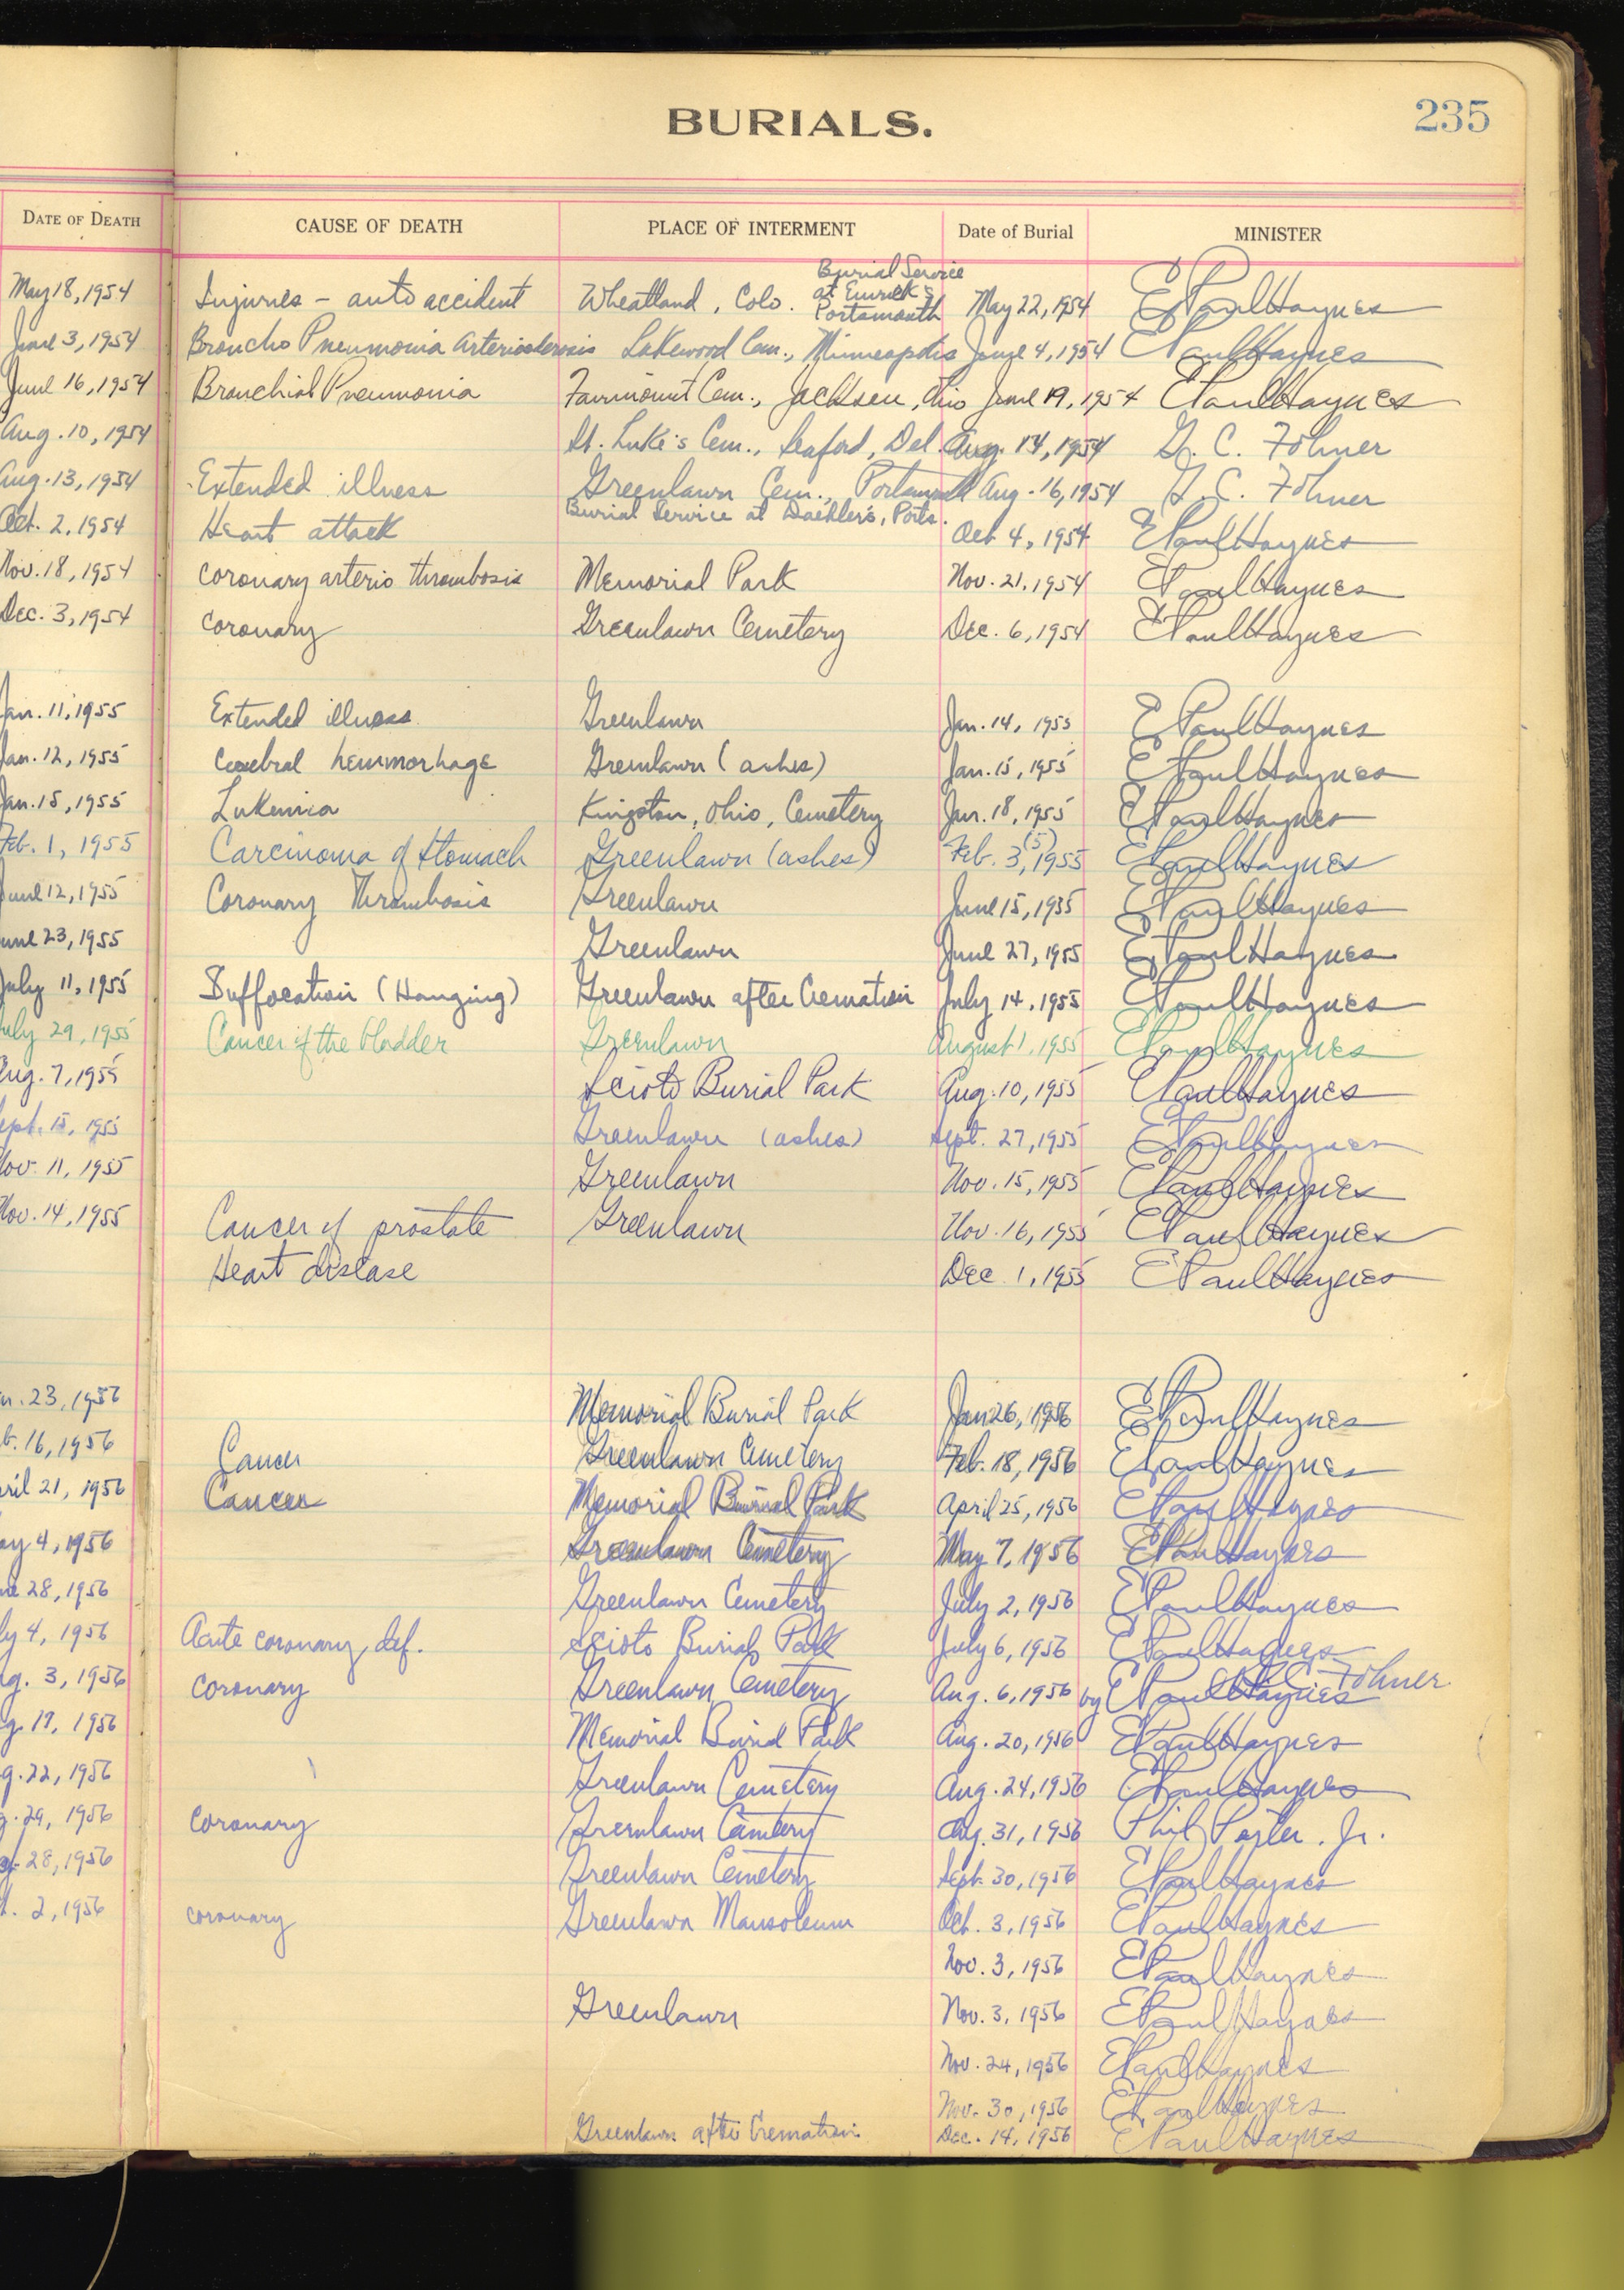 BURIALS. 235
DATE OF DEATH CAUSE OF DEATH PLACE OF INTERMENT Date of Burial MINISTER
Burial Service
May 18, 1954 Injuries - auto accident Wheatland, Colo. at Emrick's May 22, 1954 E Paul Haynes
Portsmouth
June 3, 1954 Broncho Pneumonia Arteriosclerosis Lakewood Cem., Minneapolis June 4, 1954 E Paul Haynes
June 16, 1954 Bronchial Pneumonia Fairmount Cem., Jackson, Ohio June 19, 1954 E Paul Haynes
Aug. 10, 1954 St. Luke's Cem., Seaford, Del. Aug. 14, 1954 G. C. Fohner
Aug. 13, 1954 Extended illness Greenlawn Cem., Portsmouth Aug. 16, 1954 G. C. Fohner
Burial Service at Daehler's, Ports.
Oct. 2, 1954 Heart attack Oct 4, 1954 E Paul Haynes
Nov. 18, 1954 Coronary arterio thrombosis Memorial Park Nov. 21, 1954 E Paul Haynes
Dec. 3, 1954 Coronary Greenlawn Cemetery Dec. 6, 1954 E Paul Haynes
Jan. 11, 1955 Extended illness Greenlawn Jan. 14, 1955 E Paul Haynes
Jan. 12, 1955 Cerebral hemmorhage Greenlawn (ashes) Jan. 15, 1955 E Paul Haynes
Jan. 15, 1955 Lukemia Kingston, Ohio, Cemetery Jan. 18, 1955 E Paul Haynes
Feb. 1, 1955 Carcinoma of Stomach Greenlawn (ashes) Feb. 3,(5) 1955 E Paul Haynes
June 12, 1955 Coronary Thrombosis Greenlawn June 15, 1955 E Paul Haynes
June 23, 1955 Greenlawn June 27, 1955 E Paul Haynes
July 11, 1955 Suffocation (Hanging) Greenlawn after Cremation July 14, 1955 E Paul Haynes
July 29, 1955 Cancer of the bladder Greenlawn August 1, 1955 E Paul Haynes
Aug. 7, 1955 Scioto Burial Park Aug. 10, 1955 E Paul Haynes
ept. 15, 1955 Greenlawn (ashes) Sept. 27, 1955 E Paul Haynes
Nov. 11, 1955 Greenlawn Nov. 15, 1955 E Paul Haynes
Nov. 14, 1955 Cancer of prostate Greenlawn Nov. 16, 1955 E Paul Haynes
Heart disease Dec. 1, 1955 E Paul Haynes
n. 23, 1956 Memorial Burial Park Jan 26, 1956 E Paul Haynes
b. 16, 1956 Cancer Greenlawn Cemetery Feb. 18, 1956 E Paul Haynes
ril 21, 1956 Cancer Memorial Burial Park April 25, 1956 E Paul Haynes
ay 4, 1956 Greenlawn Cemetery May 7, 1956 E Paul Haynes
ne 28, 1956 Greenlawn Cemetery July 2, 1956 E Paul Haynes
ly 4, 1956 Acute coronary def. Scioto Burial Park July 6, 1956 E Paul Haynes
g. 3, 1956 Coronary Greenlawn Cemetery Aug. 6, 1956 by E Paul Haynes Fohner
g. 17, 1956 Memorial Burial Park Aug. 20, 1956 E Paul Haynes
g. 22, 1956 Greenlawn Cemetery Aug. 24, 1956 E Paul Haynes
g. 29, 1956 Coronary Greenlawn Cemetery Aug. 31, 1956 Phil Porter, Jr.
28, 1956 Greenlawn Cemetery Sept. 30, 1956 E Paul Haynes
t. 2, 1956 coronary Greenlawn Mausoleum Oct. 3, 1956 E Paul Haynes
Nov. 3, 1956 E Paul Haynes
Greenlawn Nov. 3, 1956 E Paul Haynes
Nov. 24, 1956 E Paul Haynes
Nov. 30, 1956 E Paul Haynes
Greenlawn after Cremation Dec. 14, 1956 E Paul Haynes